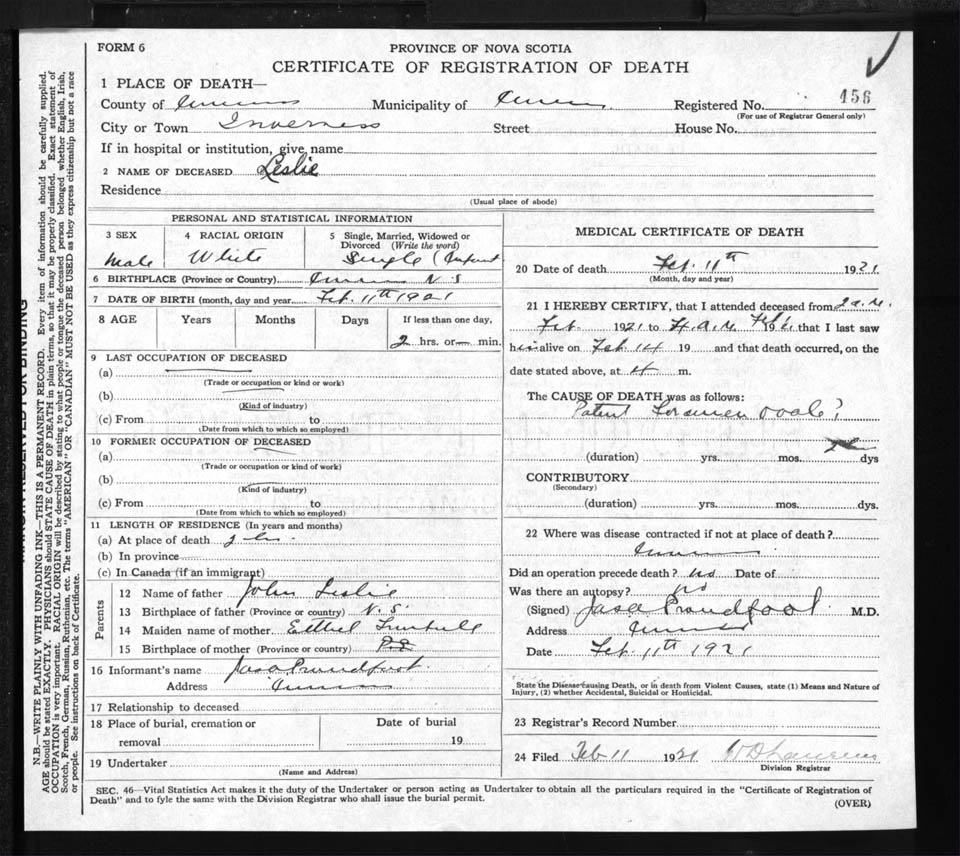 FORM 6
PROVINCE OF NOVA SCOTIA
CERTIFICATE OF REGISTRATION OF DEATH
1 PLACE OF DEATH—
County of Inverness Municipality of Registered No. 456
(For use of Registrar General only)
City or Town Inverness Street House No.
If in hospital or institution, give name
2 NAME OF DECEASED Leslie
Residence
(Usual place of abode)
PERSONAL AND STATISTICAL INFORMATION
3 SEX
Male
4 RACIAL ORIGIN
White
5 Single, Married, Widowed or
Divorced (Write the word)
Single (Infant
6 BIRTHPLACE (Province or Country) N S
7 DATE OF BIRTH (month, day and year) Feb. 11th 1921
8 AGE Years Months Days If less than one day,
2 hrs. or — min.
9 LAST OCCUPATION OF DECEASED
(a)
(Trade or occupation or kind or work)
(b)
(Kind of industry)
(c) From to
(Date from which to which so employed)
10 FORMER OCCUPATION OF DECEASED
(a)
(Trade or occupation or kind of work)
(b)
(Kind of industry)
(c) From to
(Date from which to which so employed)
11 LENGTH OF RESIDENCE (In years and months)
(a) At place of death 2 hrs.
(b) In province
(c) In Canada (if an immigrant)
Parents
12 Name of father John Leslie
13 Birthplace of father (Province or country) N. S.
14 Maiden name of mother
15 Birthplace of mother (Province or country)
16 Informant's name Jas A Proudfoot.
Address
17 Relationship to deceased
18 Place of burial, cremation or
removal
Date of burial
19
19 Undertaker
(Name and Address)
MEDICAL CERTIFICATE OF DEATH
20 Date of death Feb. 11th 1921
(Month, day and year)
21 I HEREBY CERTIFY, that I attended deceased from 2 a.m.
Feb. 1921 to 4 a.m. 192 that I last saw
him alive on Feb 19 and that death occurred, on the
date stated above, at 4 m.
The CAUSE OF DEATH was as follows:
Patent Foramen ovale?
(duration) yrs. mos. dys
CONTRIBUTORY
(Secondary)
(duration) yrs. mos. dys.
22 Where was disease contracted if not at place of death?
Did an operation precede death? No Date of
Was there an autopsy? No
(Signed) Jas A Proudfoot M.D.
Address
Date Feb. 11th 1921
State the Disease causing Death, or in death from Violent Causes, state (1) Means and Nature of
Injury, (2) whether Accidental, Suicidal or Homicidal.
23 Registrar's Record Number
24 Filed Feb 11 1921
Division Registrar
SEC. 46—Vital Statistics Act makes it the duty of the Undertaker or person acting as Undertaker to obtain all the particulars required in the "Certificate of Registration of
Death" and to fyle the same with the Division Registrar who shall issue the burial permit.
(OVER)
MARGIN RESERVED FOR BINDING
N.B.—WRITE PLAINLY WITH UNFADING INK—THIS IS A PERMANENT RECORD. Every item of information should be carefully supplied.
AGE should be stated EXACTLY. PHYSICIANS should STATE CAUSE OF DEATH in plain terms, so that it may be properly classified. Exact statement of
OCCUPATION is very important. RACIAL ORIGIN will be described by stating to what people or tongue the deceased person belonged whether English, Irish,
Scotch, French, German, Russian, Ruthenian, etc. The terms "AMERICAN" OR "CANADIAN" MUST NOT BE USED as they express citizenship but not a race
or people. See instructions on back of Certificate.